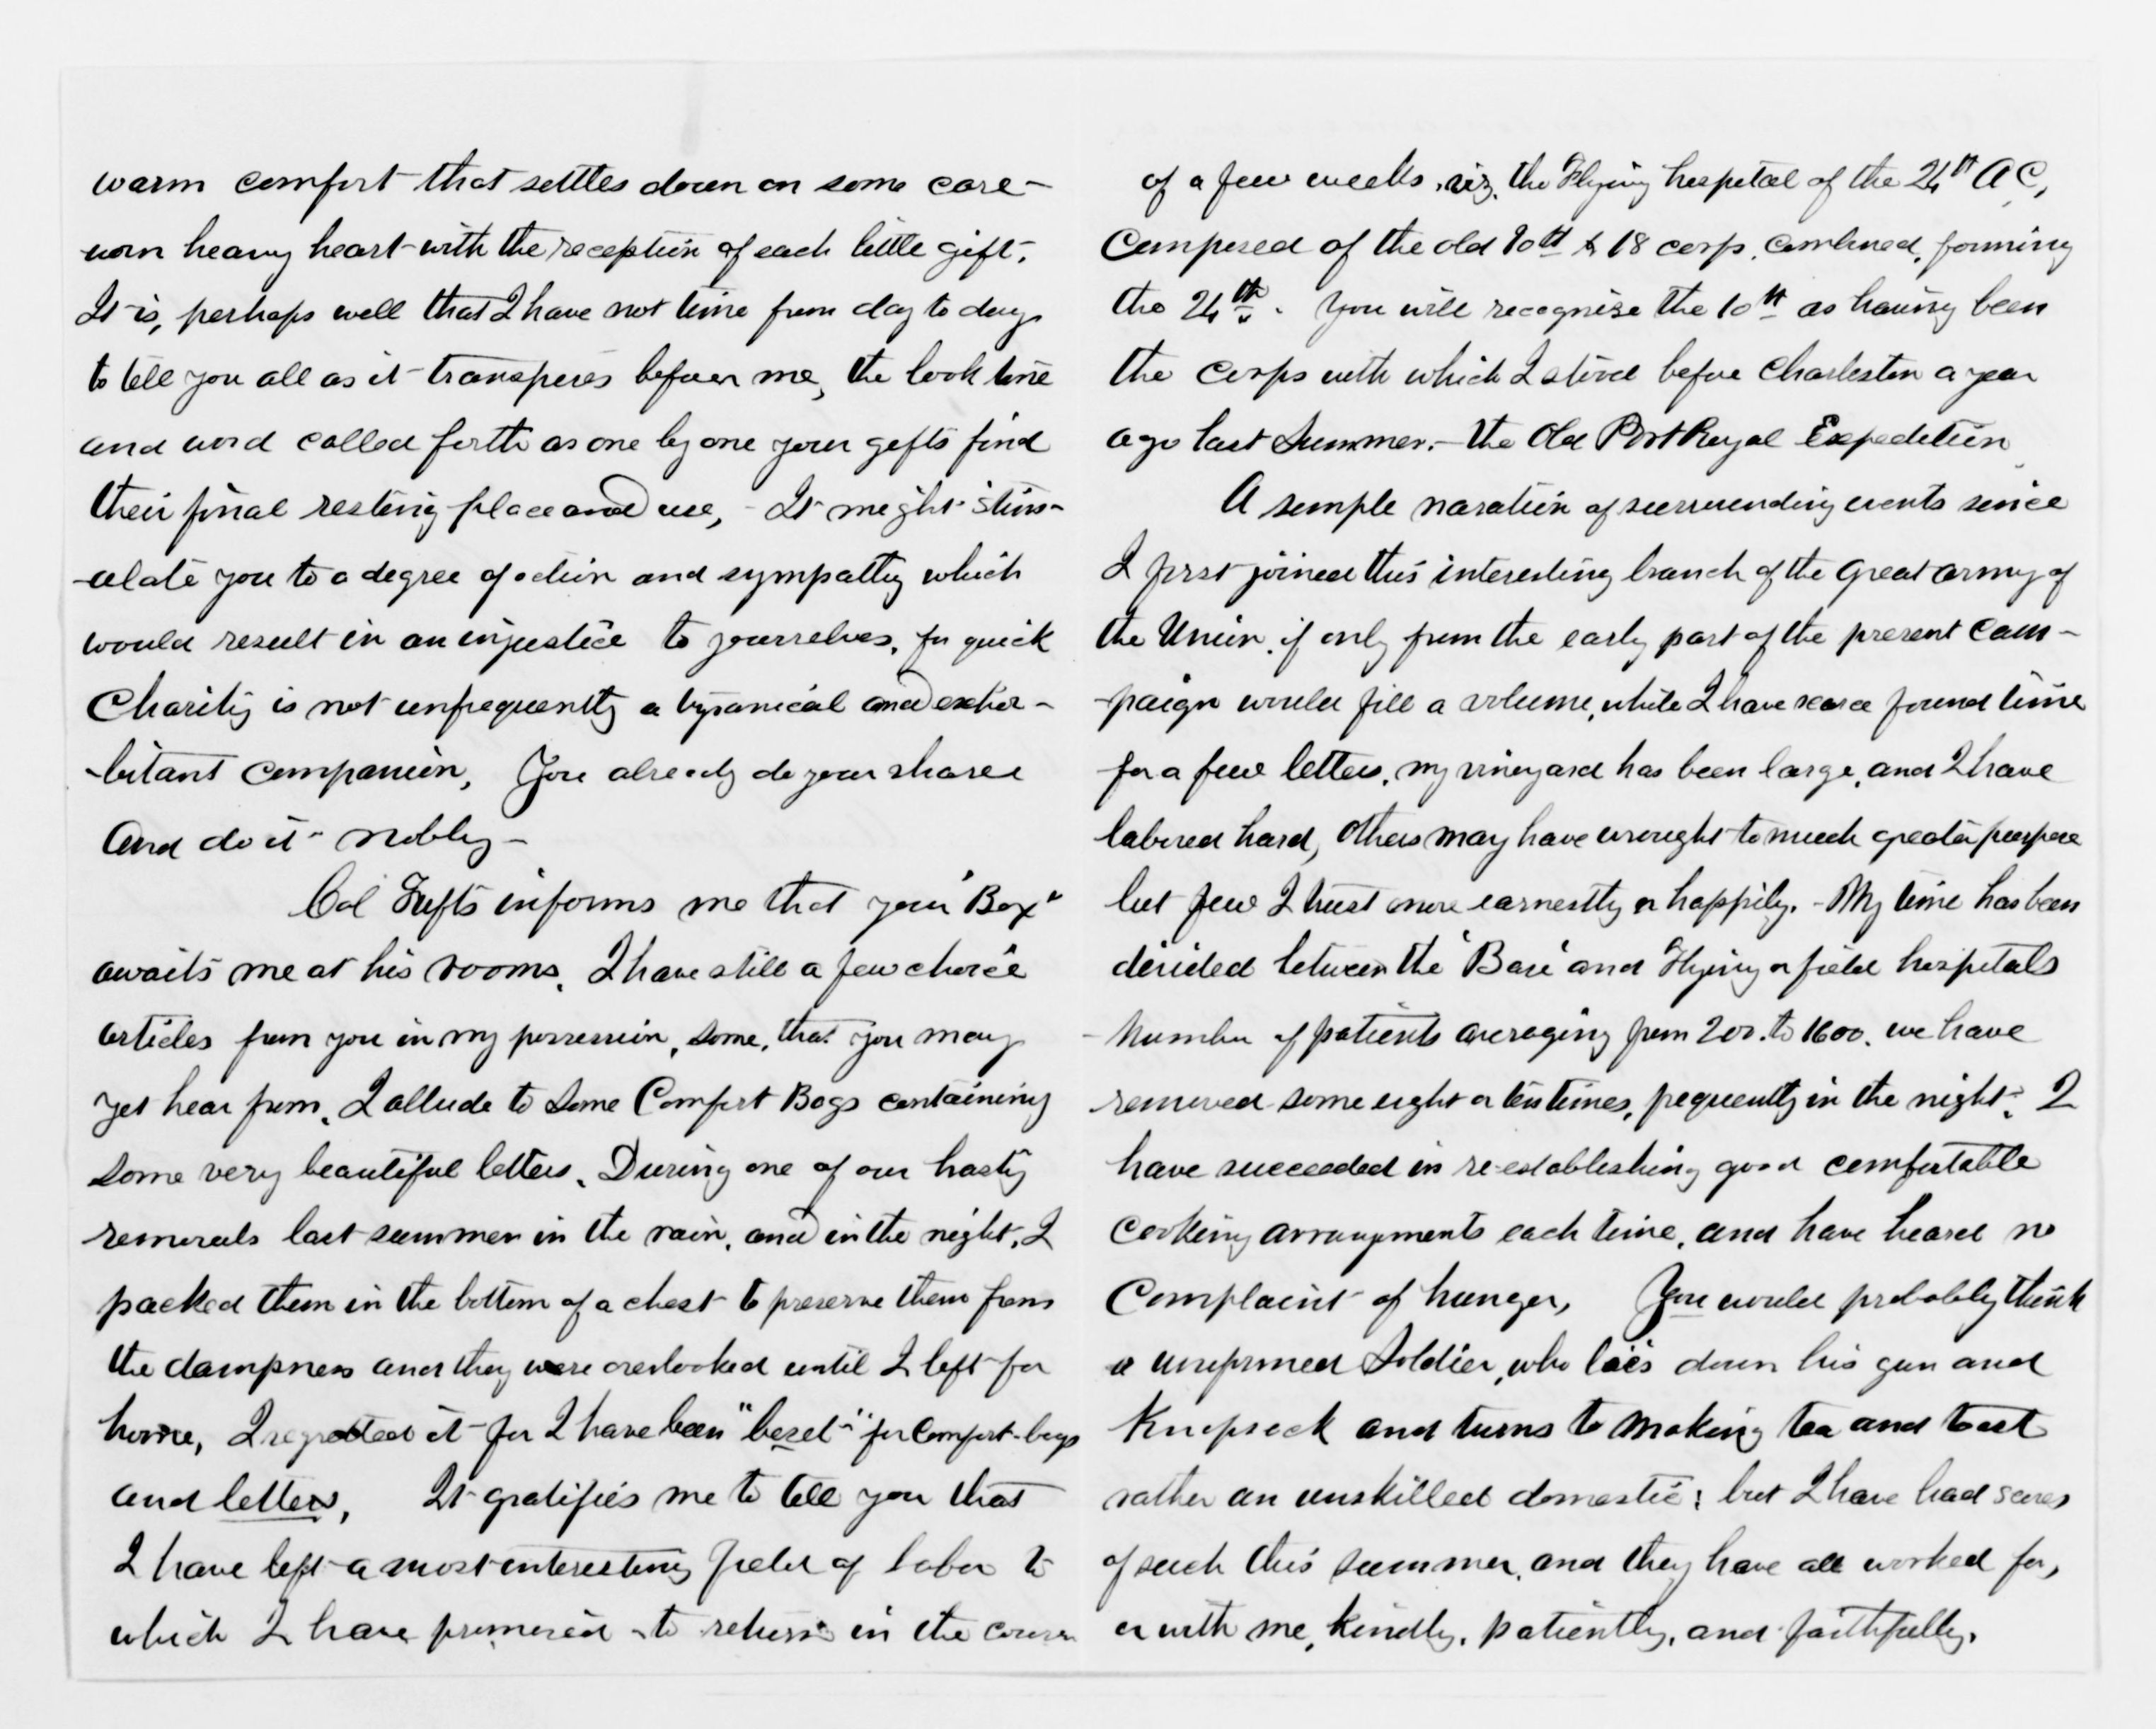 warm comfort that settles down on some care-
worn heavy heart with the reception of each little gift.
It is, perhaps well that I have not time from day to day
to tell you all as it transpires before me, the look tone
and word called forth as one by one your gifts find
their final resting place and use, - It might stim-
-ulate you to a degree of action and sympathy which
would result in an injustice to yourselves, for quick
Charity is not unfrequently a tyranical and exhor-
-bitant companion, You already do your share
And do it nobly -
Col Tufts informs me that your "Box"
awaits me at his rooms. I have still a few choice
articles from you in my possession, some, that you may
yet hear from. I allude to some Comfort Bags containing
some very beautiful letters. During one of our hasty
removals last summer in the rain, and in the night, I
packed them in the bottom of a chest to preserve them from
the dampness and they were overlooked until I left for
home, I regretted it for I have been "beset" for Comfort-bags
and letters, It gratifies me to tell you that
I have left a most interesting field of labor to
which I have promised to return in the course
of a few weeks, viz. the Flying hospital of the 24th A C,
Composed of the old 10th & 18 corps, combined, forming
the 24th. You will recognise the 10th as having been
the Corps with which I stood before Charleston a year
ago last Summer. - the Old Port Royal Expedition
A simple naration of surrounding events since
I first joined this interesting branch of the great army of
the Union, if only from the early part of the present Cam-
-paign would fill a volume, while I have scarce found time
for a few letters, my vineyard has been large, and I have
labored hard, Others may have wrought to much greater purpose
but few I trust more earnestly or happily. - My time has been
divided between the 'Base' and Flying or field hospitals
- Number of patients averaging from 200. to 1600. we have
removed some eight or ten times, frequently in the night. I
have succeeded in re-establishing good comfortable
Cooking arrangements each time, and have heard no
Complaint of hunger, You would probably think
a uniformed Soldier, who laies down his gun and
Knapsack and turns to making tea and toast
rather an unskilled domestic; but I have had scores
of such this summer, and they have all worked for,
or with me, kindly, patiently, and faithfully.